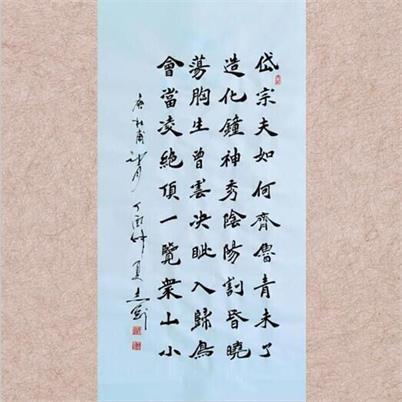 岱宗夫如何齊魯青未了
造化鐘神秀陰陽割昏曉
蕩胸生曾雲決眦入歸鳥
會當凌絕頂一覽衆山小
唐杜甫詩 丁酉仲夏